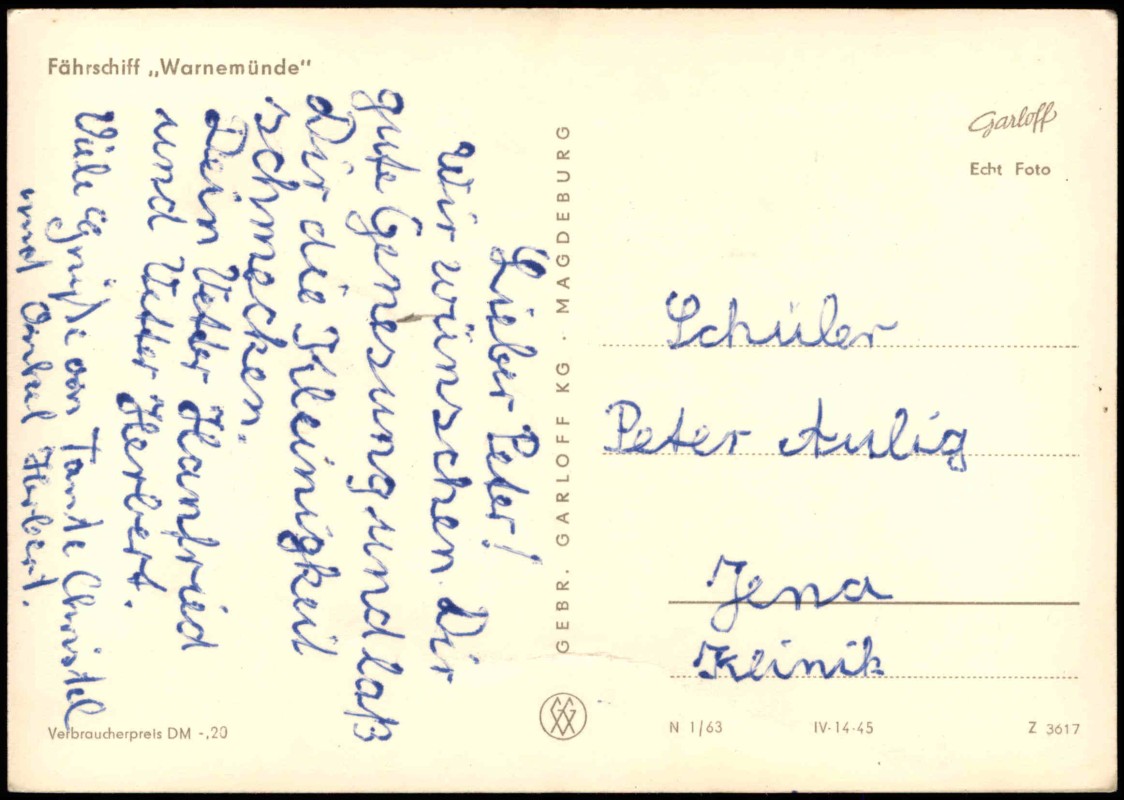 Fährschiff „Warnemünde"
Lieber Peter!
Wir wünschen Dir
gute Genesung und laß
Dir die Kleinigkeit
schmecken.
Dein Vetter Hanfried
und Vetter Herbert.
Viele Grüße von Tante Christel
und Onkel Herbert.
Verbraucherpreis DM -,20
GEBR. GARLOFF KG · MAGDEBURG
Garloff
Echt Foto
Schüler
Peter Aulig
Jena
Kli̇nik
N 1/63 IV-14-45 Z 3617